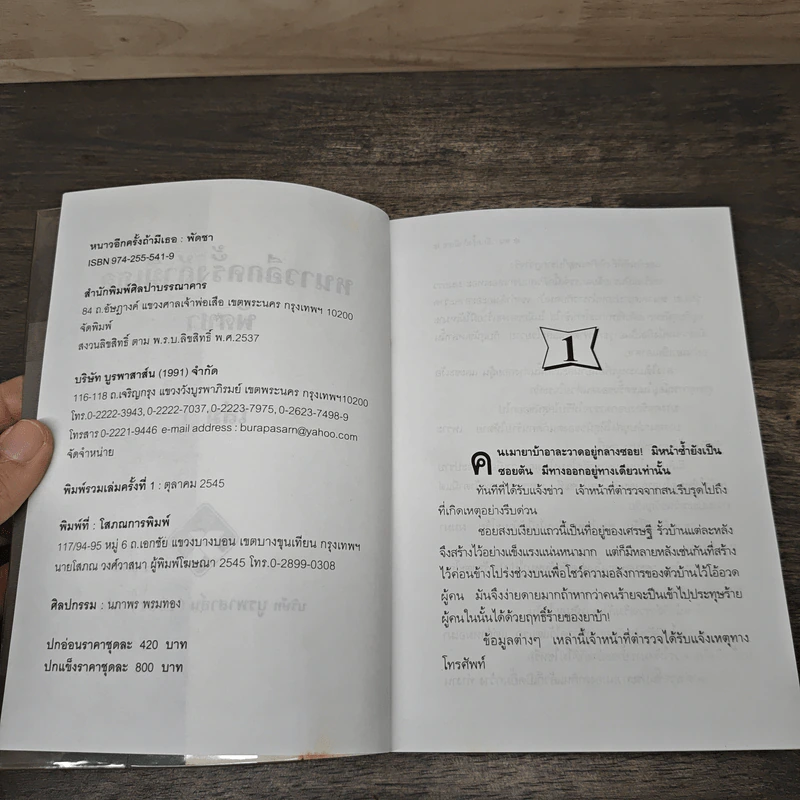 หนาวอีกครั้งถ้ามีเธอ : พัดชา
ISBN 974-255-541-9
สำนักพิมพ์ศิลปาบรรณาคาร
84 ถ.อัษฎางค์ แขวงศาลเจ้าพ่อเสือ เขตพระนคร กรุงเทพฯ 10200
จัดพิมพ์
สงวนลิขสิทธิ์ ตาม พ.ร.บ.ลิขสิทธิ์ พ.ศ.2537
บริษัท บูรพาสาส์น (1991) จำกัด
116-118 ถ.เจริญกรุง แขวงวังบูรพาภิรมย์ เขตพระนคร กรุงเทพฯ10200
โทร.0-2222-3943, 0-2222-7037, 0-2223-7975, 0-2623-7498-9
โทรสาร 0-2221-9446 e-mail address : burapasarn@yahoo.com
จัดจำหน่าย
พิมพ์รวมเล่มครั้งที่ 1 : ตุลาคม 2545
พิมพ์ที่ : โสภณการพิมพ์
117/94-95 หมู่ 6 ถ.เอกชัย แขวงบางบอน เขตบางขุนเทียน กรุงเทพฯ
นายโสภณ วงศ์วาสนา ผู้พิมพ์โฆษณา 2545 โทร.0-2899-0308
ศิลปกรรม : นภาพร พรมทอง
ปกอ่อนราคาชุดละ 420 บาท
ปกแข็งราคาชุดละ 800 บาท
1
คนเมายาบ้าอาละวาดอยู่กลางซอย! มิหนำซ้ำยังเป็น
ซอยตัน มีทางออกอยู่ทางเดียวเท่านั้น
ทันทีที่ได้รับแจ้งข่าว เจ้าหน้าที่ตำรวจจากสน.รีบรุดไปถึง
ที่เกิดเหตุอย่างรีบด่วน
ซอยสงบเงียบแถวนี้เป็นที่อยู่ของเศรษฐี รั้วบ้านแต่ละหลัง
จึงสร้างไว้อย่างแข็งแรงแน่นหนามาก แต่ก็มีหลายหลังเช่นกันที่สร้าง
ไว้ค่อนข้างโปร่งช่วงบนเพื่อโชว์ความอลังการของตัวบ้านไว้โอ้อวด
ผู้คน มันจึงง่ายดายมากถ้าหากว่าคนร้ายจะปีนเข้าไปประทุษร้าย
ผู้คนในนั้นได้ด้วยฤทธิ์ร้ายของยาบ้า!
ข้อมูลต่างๆ เหล่านี้เจ้าหน้าที่ตำรวจได้รับแจ้งเหตุทาง
โทรศัพท์